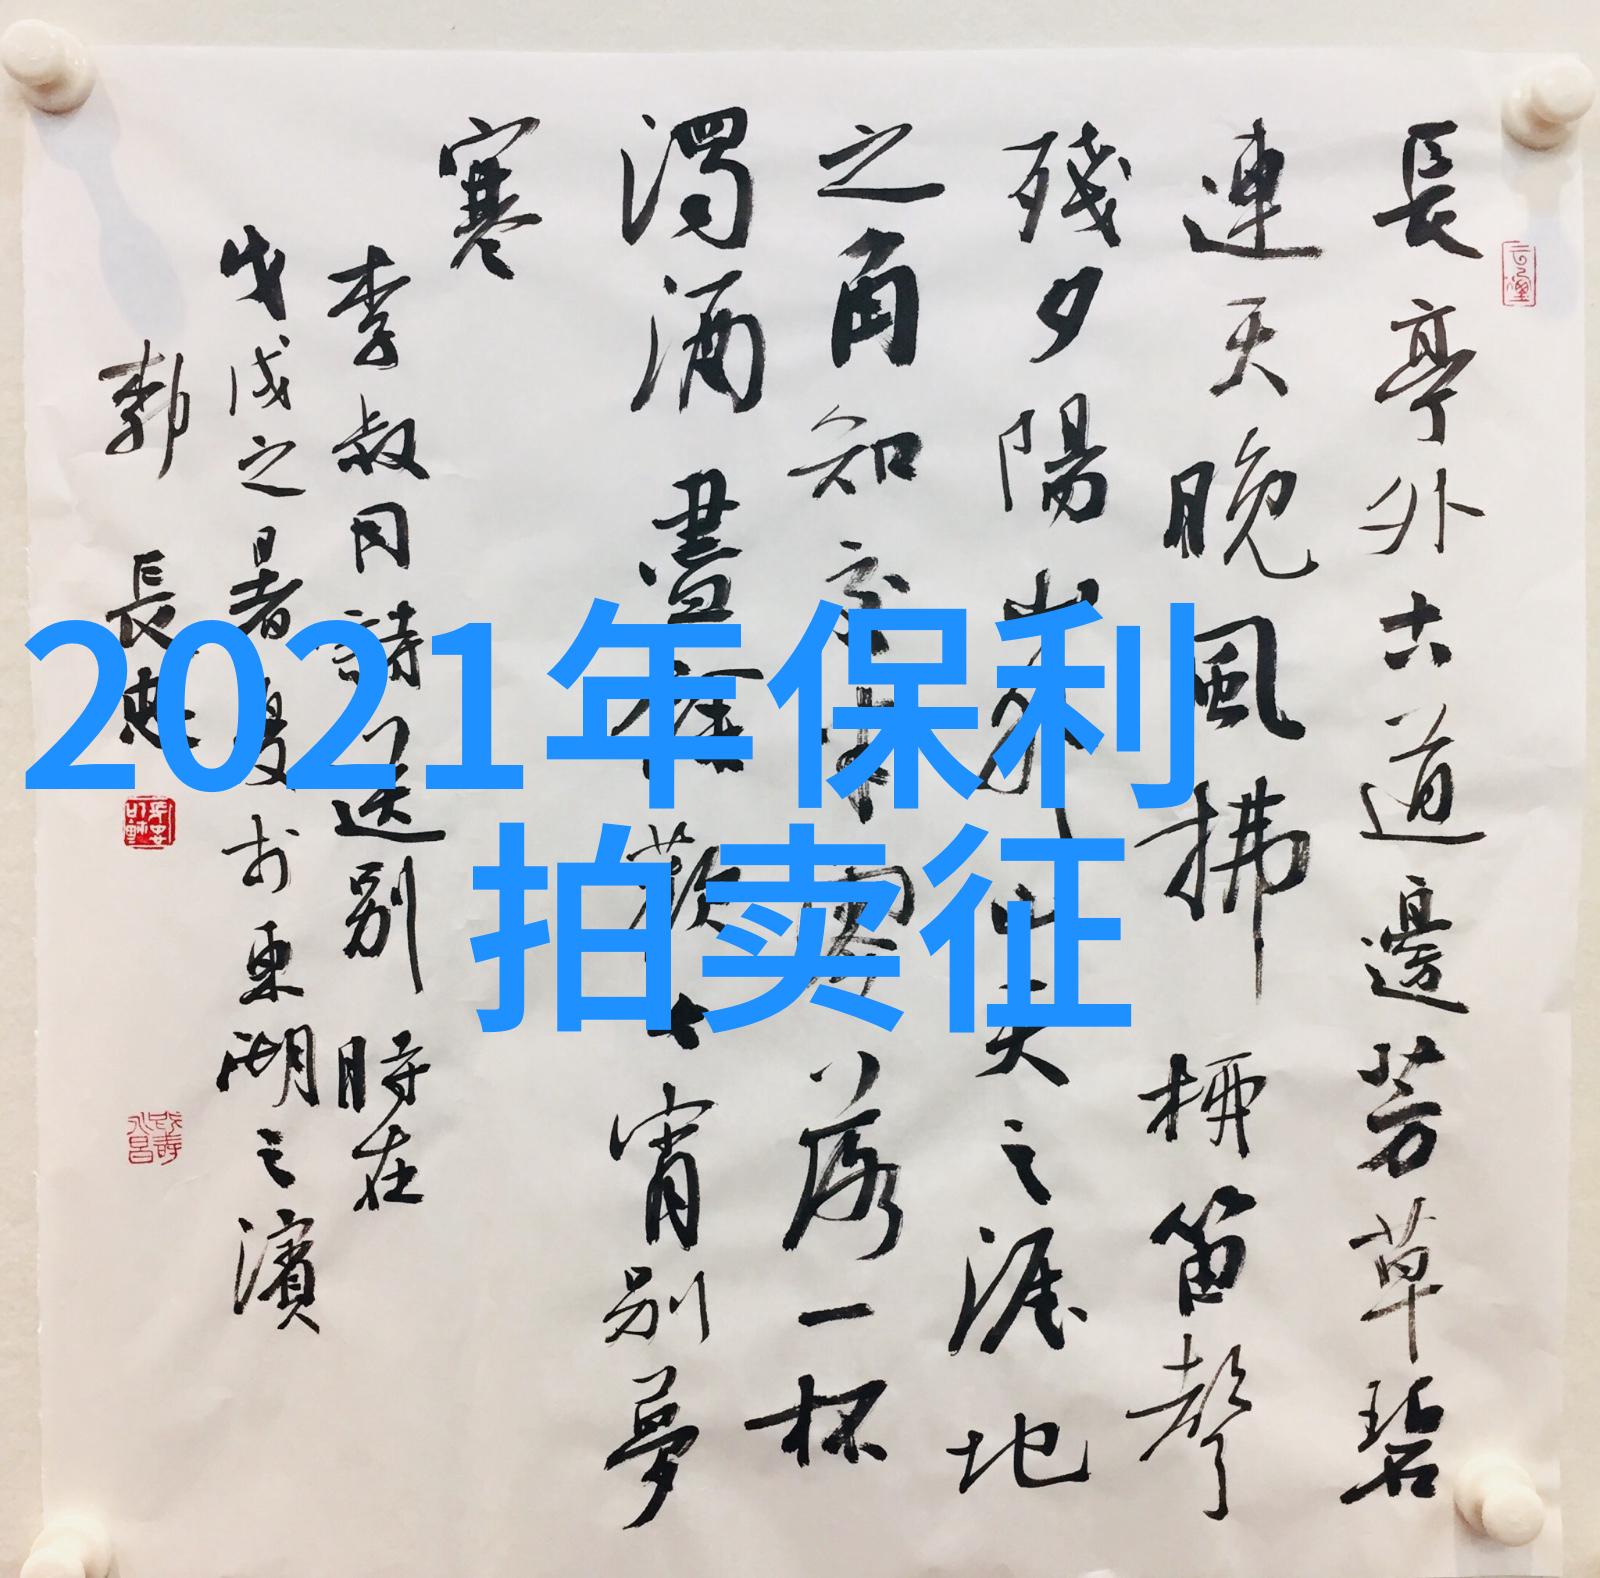 長亭外古道邊芳草碧
連天晚風拂柳笛聲
殘夕陽山外山天之涯地
之角知交半零落一杯
濁酒盡餘歡今宵別夢
寒
李叔同詩送別 時在
戊戌之暑夏於東湖之濱
郭長忠
2021年保利
拍卖征